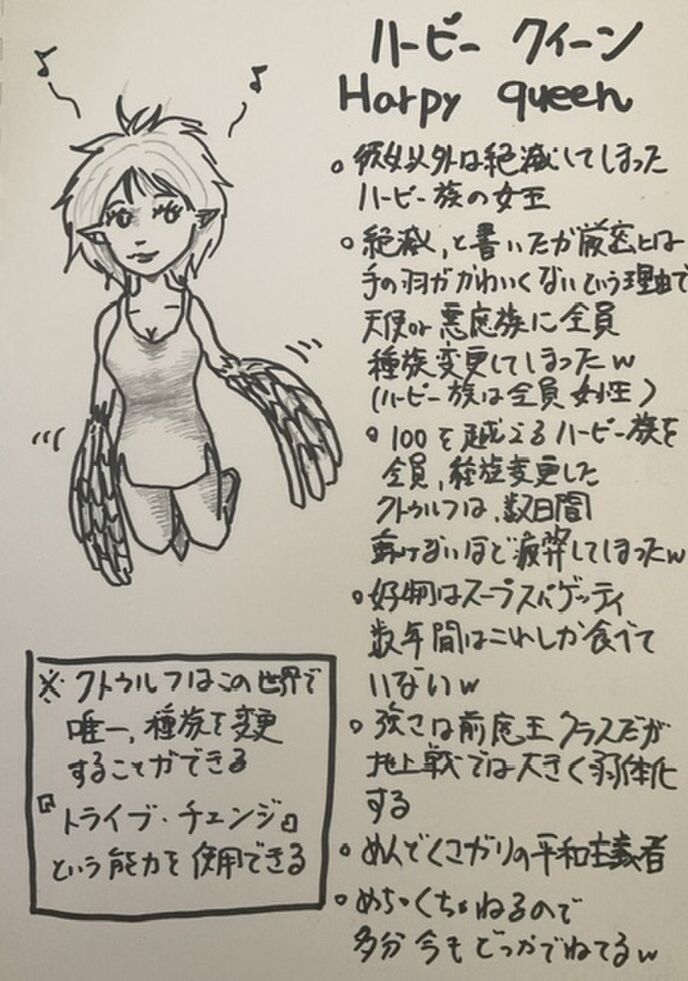 ハーピー クイーン
Harpy queen
。彼女以外は絶滅してしまった
ハーピー族の女王
。絶滅、と書いたが厳密には
手の羽がかわいくないという理由で
天使or悪魔族に全員
種族変更してしまったw
(ハーピー族は全員女性)
。100を越えるハーピー族を
全員、種族変更した
クトゥルフは、数日間
動けないほど疲弊してしまったw
。好物はスープスパゲッティ
数年間はこれしか食べて
いないw
。強さは前魔王クラスだが
地上戦では大きく弱体化
する
。めんでくさがりの平和主義者
。めちゃくちゃねるので
多分今もどっかでねてるw
※クトゥルフはこの世界で
唯一、種族を変更
することができる
『トライブ・チェンジ』
という能力を使用できる